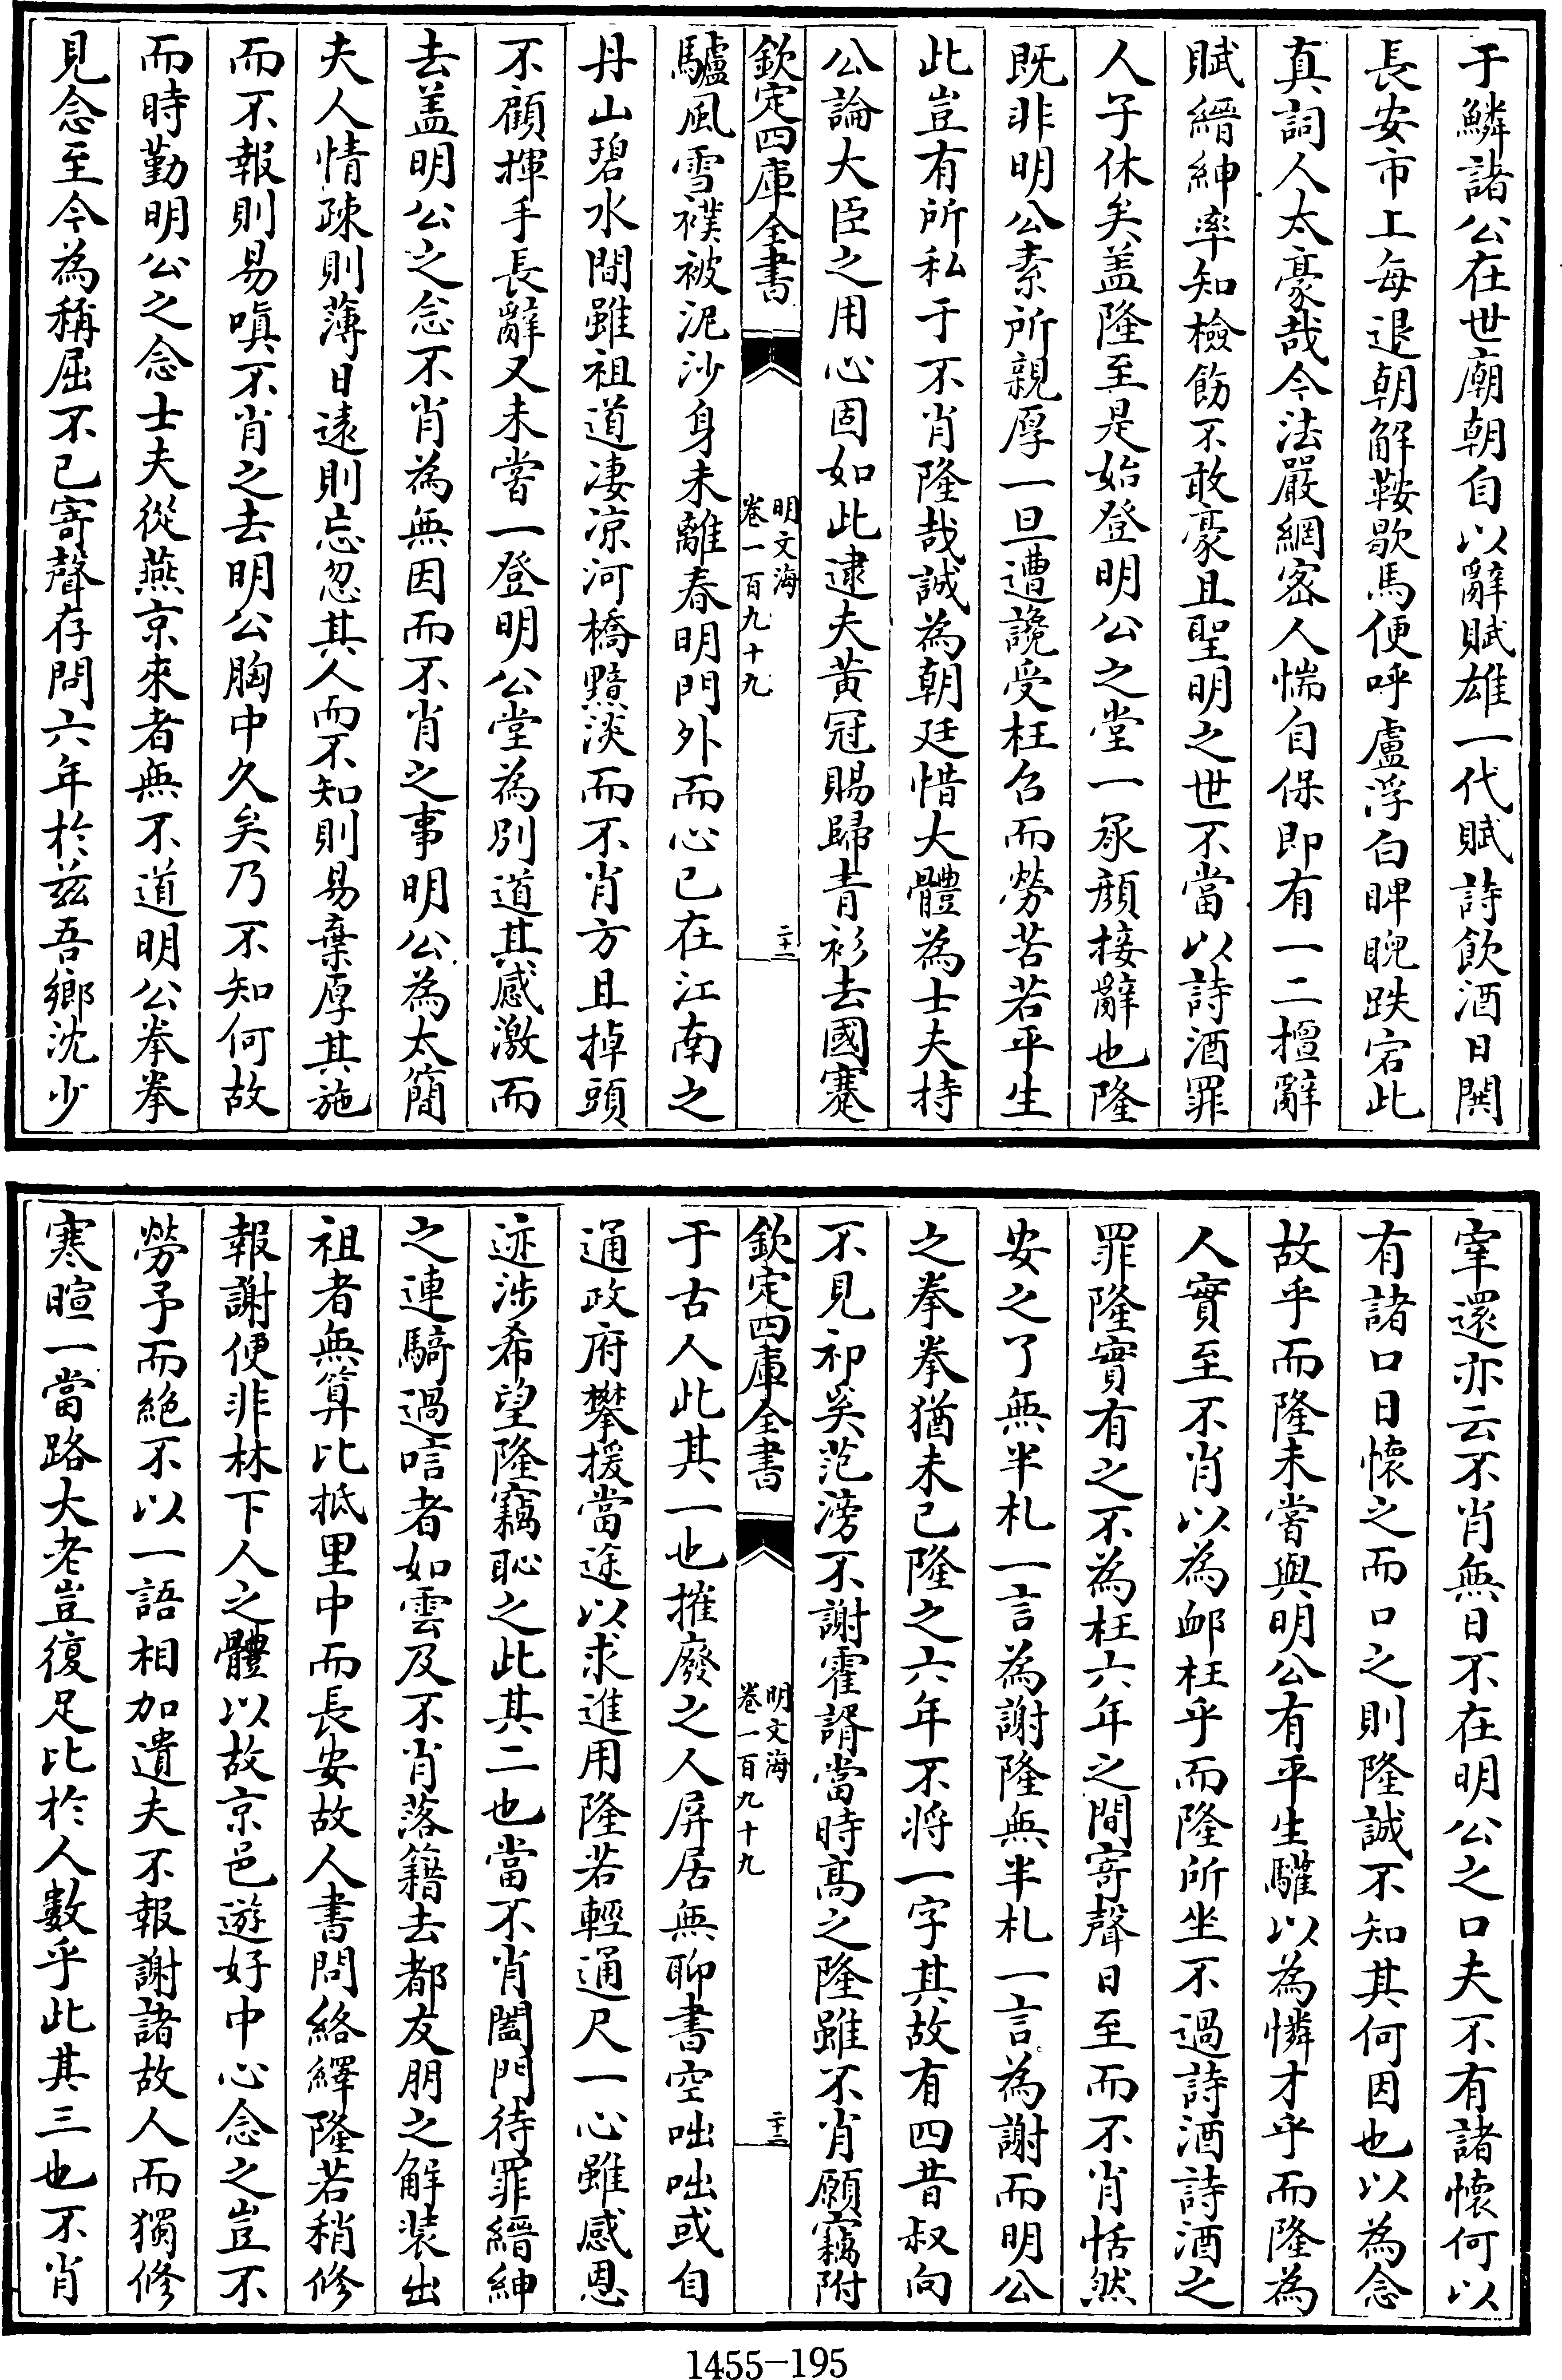 于鱗諸公在世廟朝自以辭賦雄一代賦詩飲酒日閧
長安市上每退朝解鞍歇馬便呼盧浮白睥睨跌宕此
真詞人太豪哉今法嚴網宻人惴自保即有一二擅辭
賦縉紳率知檢飭不敢豪且聖明之世不當以詩酒罪
人子休矣盖隆至是始登明公之堂一承顔接辭也隆
既非明公素所親厚一旦遭讒受枉召而勞苦若平生
此豈有所私于不肖隆哉誠為朝廷惜大體為士夫持
公論大臣之用心固如此逮夫黄冠賜歸青衫去國蹇
欽定四庫全書
明文海
卷一百九十九
二十一
驢風雪襆被泥沙身未離春明門外而心已在江南之
丹山碧水間雖祖道凄凉河橋黯淡而不肖方且掉頭
不顧揮手長辭又未嘗一登明公堂為别道其感激而
去盖明公之念不肖為無因而不肖之事明公為太簡
夫人情疎則薄日遠則忘忽其人而不知則易棄厚其施
而不報則易嗔不肖之去明公胸中久矣乃不知何故
而時勤明公之念士夫從燕京來者無不道明公拳拳
見念至今為稱屈不已寄聲存問六年於兹吾鄉沈少
宰還亦云不肖無日不在明公之口夫不有諸懷何以
有諸口日懷之而口之則隆誠不知其何因也以為念
故乎而隆未嘗與明公有平生驩以為憐才乎而隆為
人實至不肖以為䘏枉乎而隆所坐不過詩酒詩酒之
罪隆實有之不為枉六年之間寄聲日至而不肖恬然
安之了無半札一言為謝隆無半札一言為謝而明公
之拳拳猶未已隆之六年不將一字其故有四昔叔向
不見祁奚范滂不謝霍諝當時高之隆雖不肖願竊附
欽定四庫全書
明文海
卷一百九十九
二十二
于古人此其一也摧廢之人屏居無聊書空咄咄或自
通政府攀援當途以求進用隆若輕通尺一心雖感恩
迹涉希望隆竊恥之此其二也當不肖闔門待罪縉紳
之連騎過唁者如雲及不肖落籍去都友朋之解装出
祖者無算比抵里中而長安故人書問絡繹隆若稍修
報謝便非林下人之體以故京邑遊好中心念之豈不
勞予而絶不以一語相加遺夫不報謝諸故人而獨修
寒暄一當路大老豈復足比於人數乎此其三也不肖
1455-195